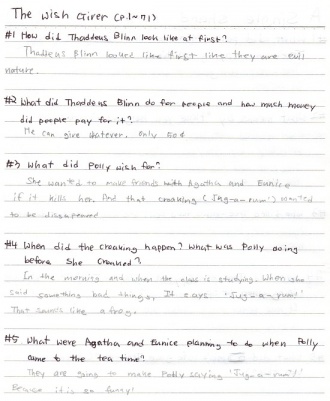 The Wish Giver (p.1~71)
#1 How did Thaddeus Blinn look like at first?
Thaddeus Blinn looked like first like they are evil
nature.
#2 What did Thaddeus Blinn do for people and how much money
did people pay for it?
He can give whatever. Only 50¢
#3 What did Polly wish for?
She wanted to make friends with Agatha and Eunice
if it kills her. And that croaking (Jug-a-rum!) wanted
to be disappeared
#4 When did the croaking happen? What was Polly doing
before she croaked?
In the morning and when the class is studying. When she
said something bad things, It says 'Jug-a-rum!'
That sounds like a frog.
#5 What were Agatha and Eunice planning to do when Polly
came to the tea time?
They are going to make Polly saying 'Jug-a-rum!'
Because it is so funny!